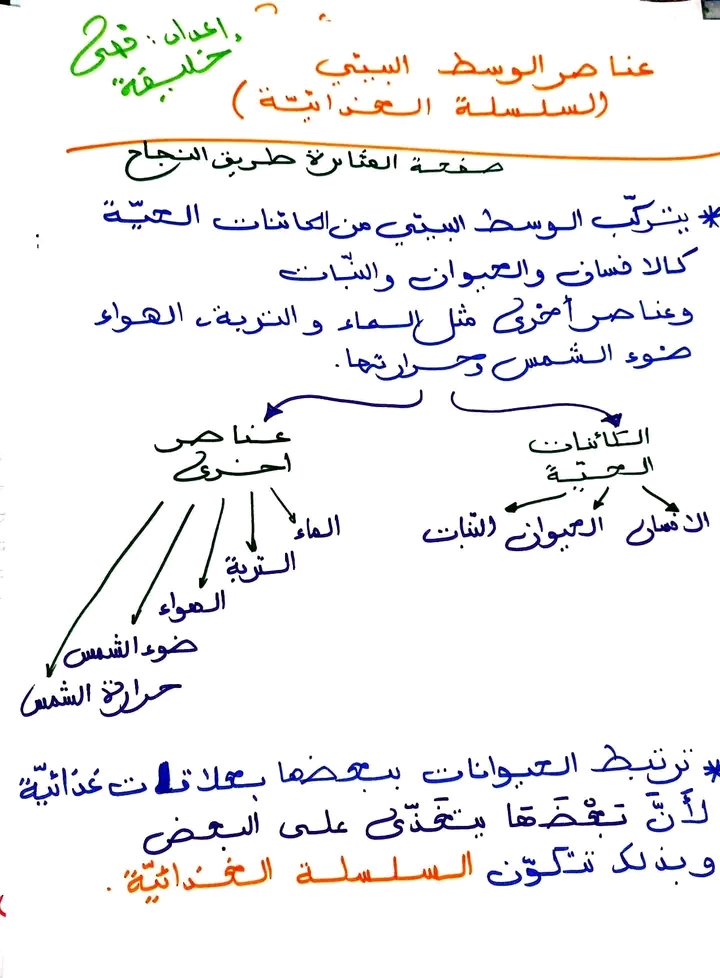 إعداد: فتحي
خليفة
عناصر الوسط البيئي
(السلسلة الغذائيّة)
صفحة المثابرة طريق النجاح
* يتركّب الوسط البيئي من الكائنات الحيّة
كالانسان والحيوان والنّبات
وعناصر أخرى مثل الماء والتربة، الهواء
ضوء الشمس وحرارتها.
الكائنات
الحيّة
عناصر
اخرى
الانسان
الحيوان
النّبات
الماء
التربة
الهواء
ضوء الشمس
حرارة الشمس
* ترتبط الحيوانات ببعضها بعلاقات غذائيّة
لأَنَّ بَعْضَهَا يتغَذّى على البعض
وبذلك تتكوّن السلسلة الغذائيّة.